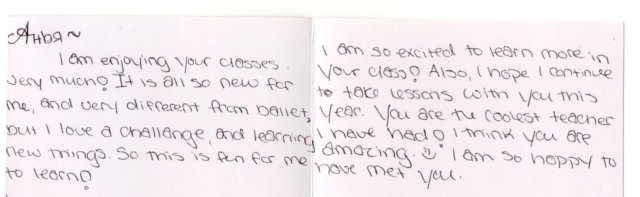 Анья ~
I am enjoying your classes
very much! It is all so new for
me, and very different from ballet,
but I love a challenge, and learning
new things. So this is fun for me
to learn!
I am so excited to learn more in
your class! Also, I hope I continue
to take lessons with you this
year. You are the coolest teacher
I have had! I think you are
amazing. I am so happy to
have met you.